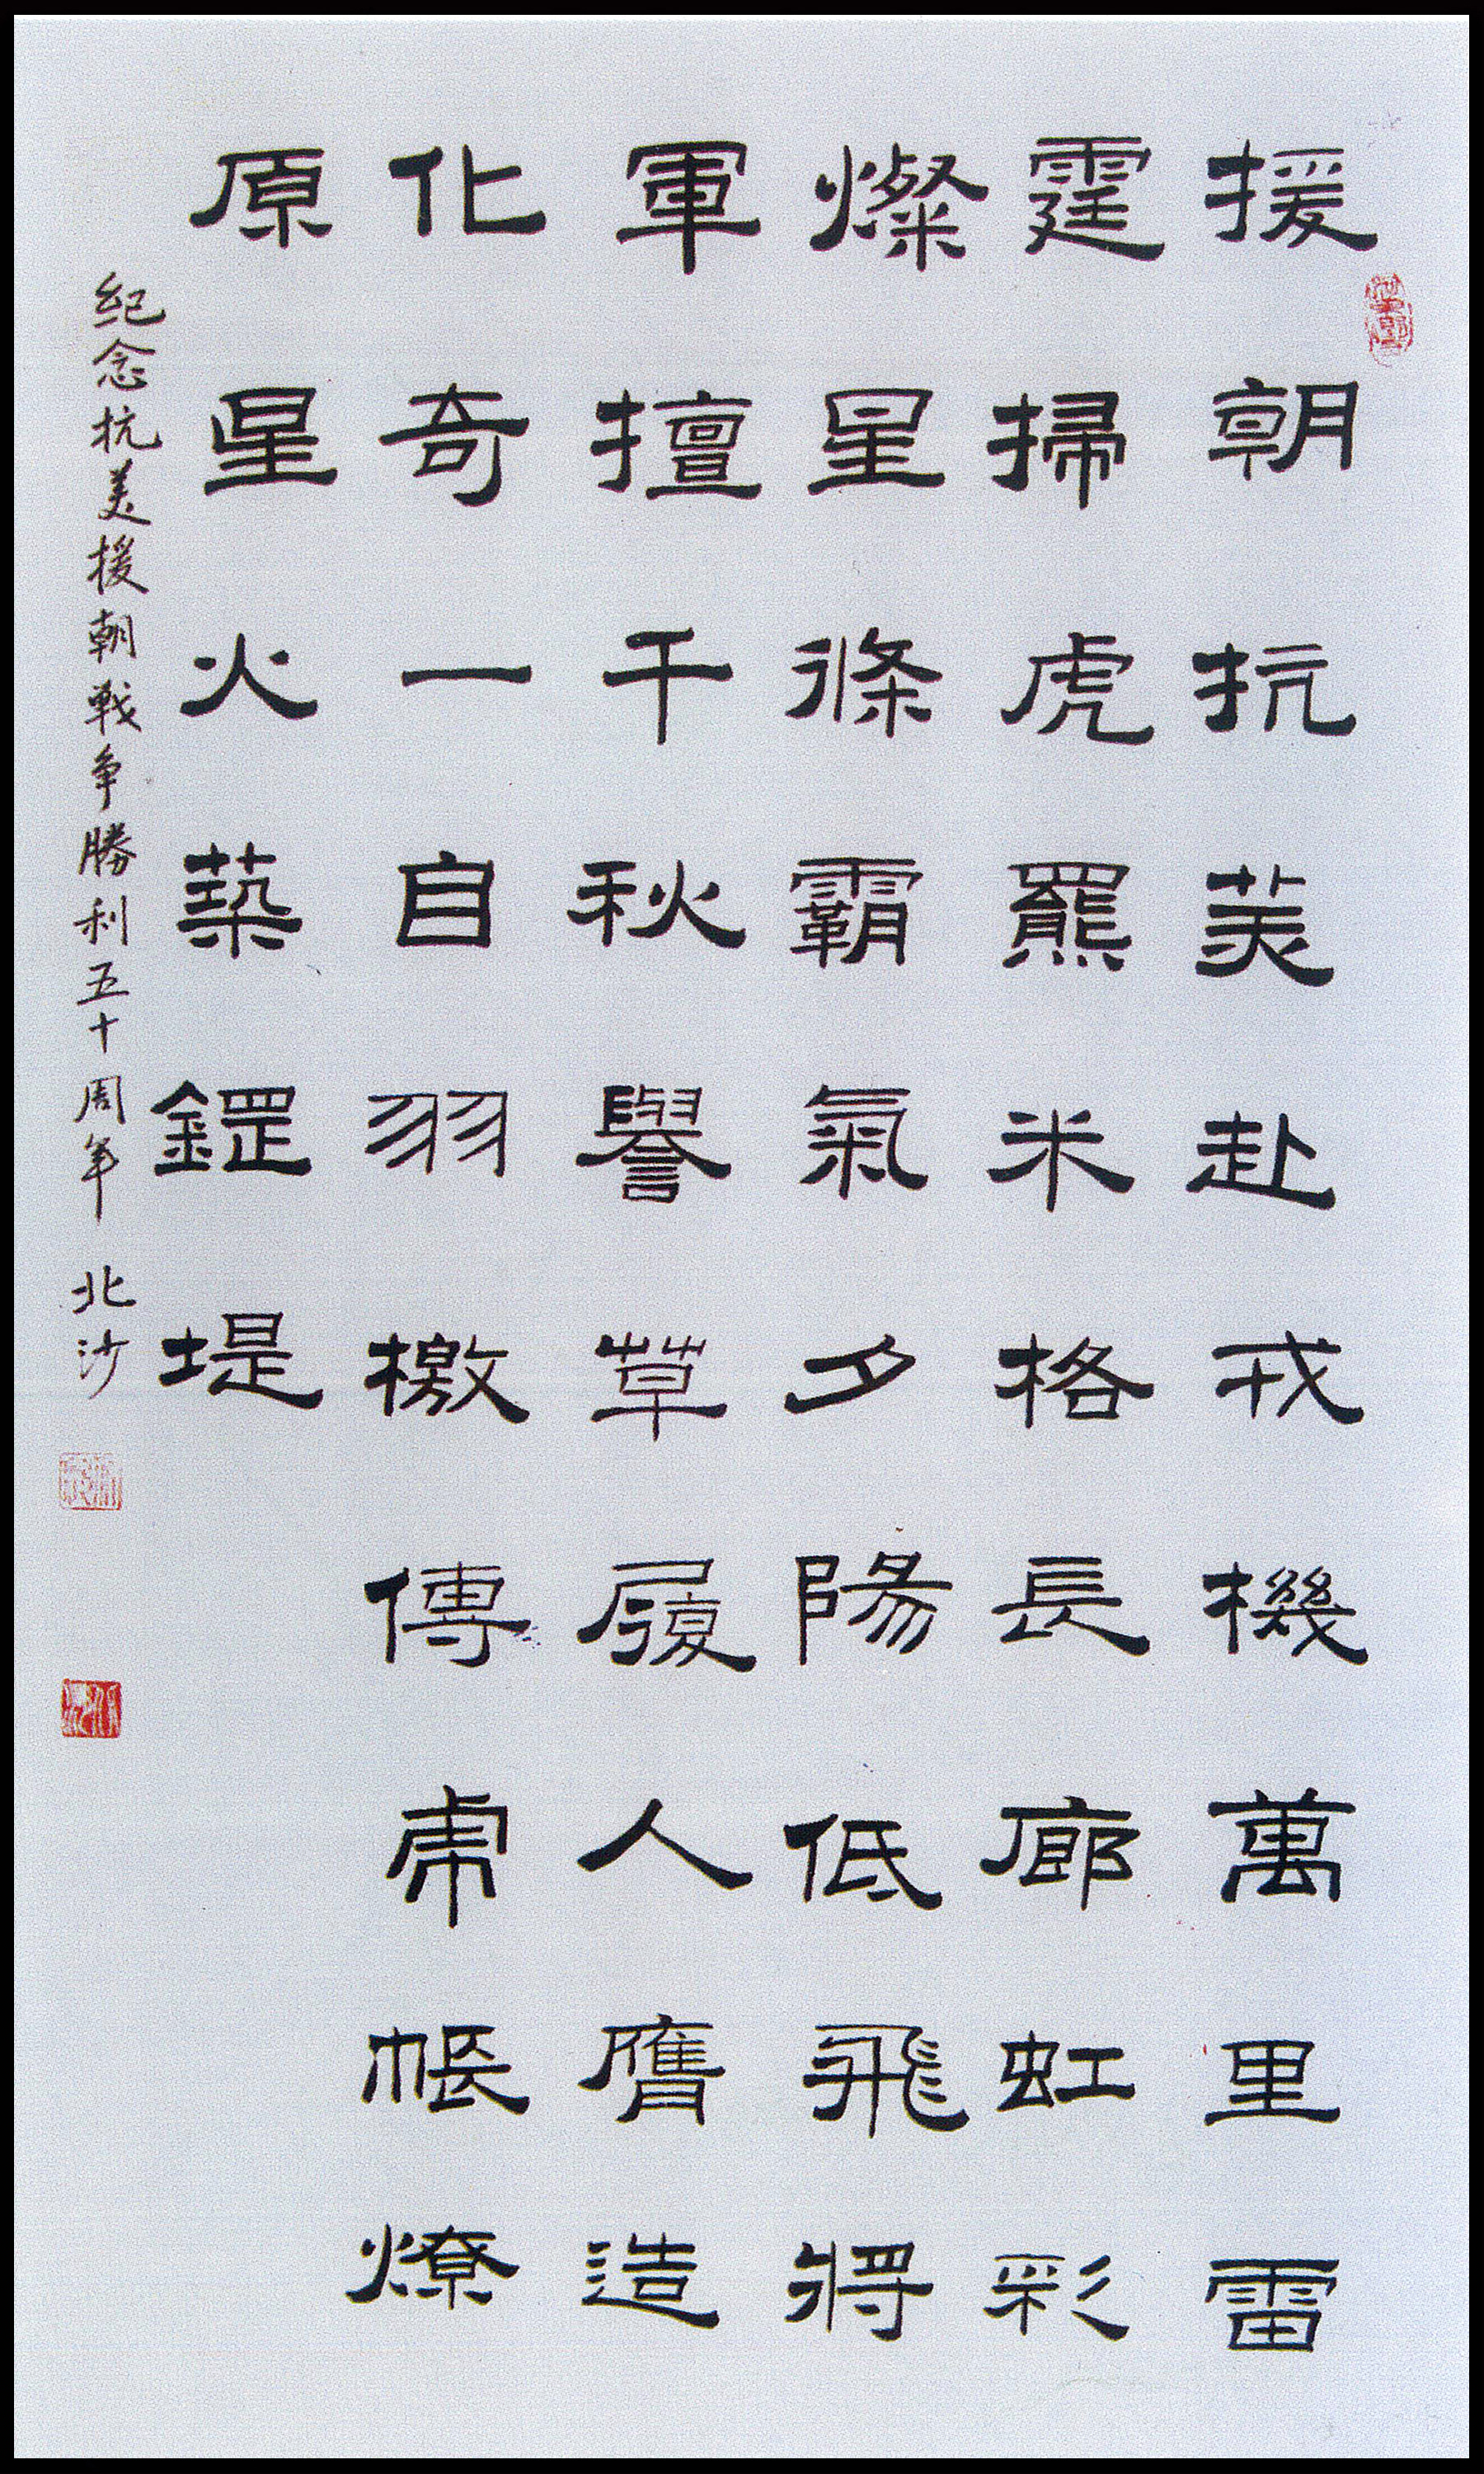 援朝抗美赴戎機萬里雷
霆掃虎羆米格長廊虹彩
燦星條霸氣夕陽低飛將
軍擅千秋譽草履人膺造
化奇一自羽檄傳虎帳燎
原星火築鋼堤
纪念抗美援朝戰争勝利五十周年 北沙